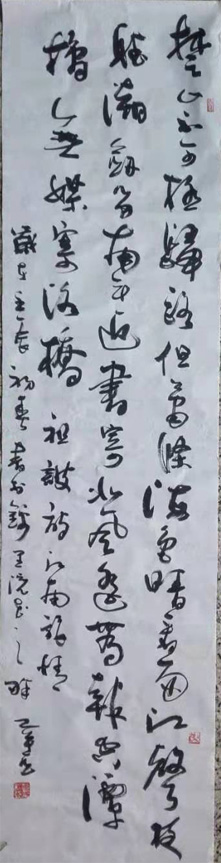 楚山不可極歸路但蕭條海色晴看雨江聲夜
聽潮劍留南斗近書寄北風遥為報空潭
橘無媒寄洛橋 祖詠詩江南旅情
歲在壬辰初春書於